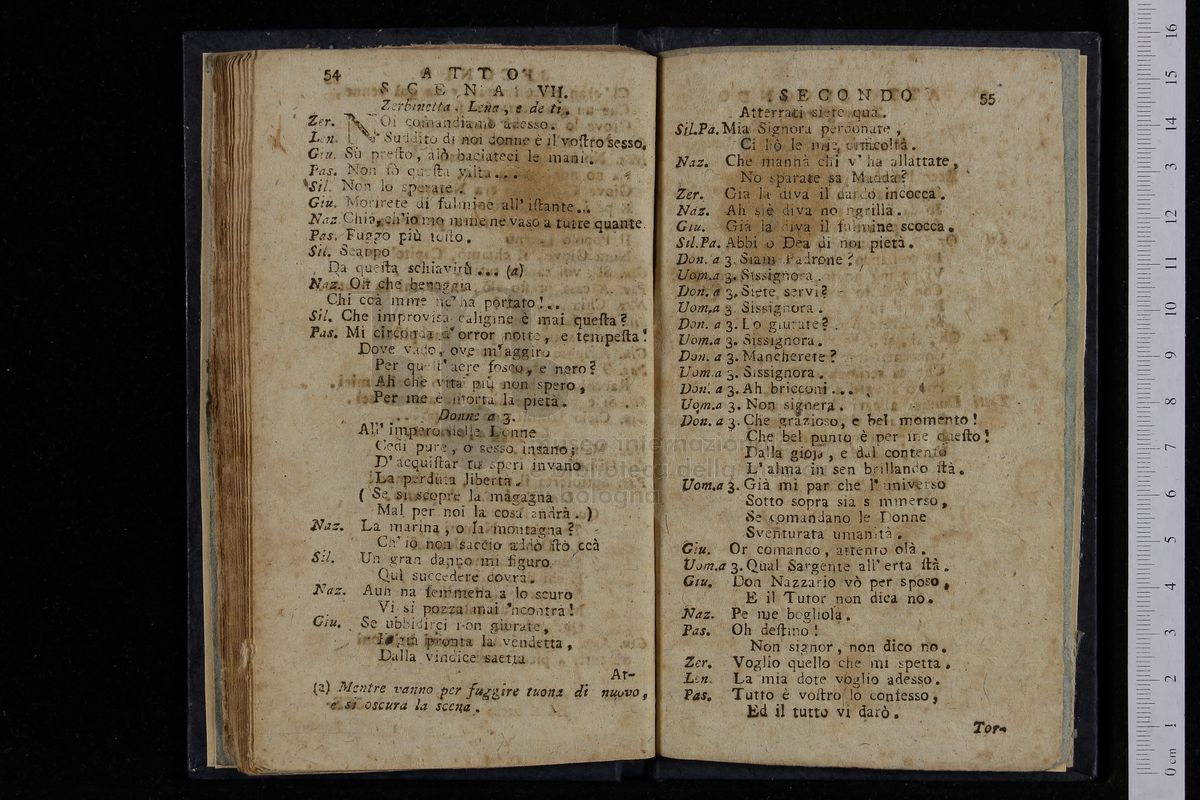 54 ATTO
SCENA VII.
Zerbinetta, Lena, e detti.
Zer. NOi comandiamo adesso.
Len. Suddito di noi donne è il voſtro sesso.
Giu. Sù preſto, alò baciateci le mani.
Pas. Non fò queſta viltà...
Sil. Non lo sperate.
Giu. Morirete di fulmine all' iſtante...
Naz. Chià, ch'io mo mme ne vaso a tutte quante.
Pas. Fuggo più toſto.
Sil. Scappo
Da queſta schiavitù... (a)
Naz. Oh che benaggia
Chi ccà mme nc' ha portato!..
Sil. Che improvisa caligine è mai queſta?
Pas. Mi circonda d' orror notte, e tempeſta!
Dove vado, ove m'aggiro
Per queſt' aere fosco, e nero?
Ah che vita più non spero,
Per me è morta la pietà.
Donne a 3.
All' impero delle Donne
Cedi pure, o sesso insano;
D' acquiſtar tu speri invano
La perduta libertà.
( Se si scopre la magagna
Mal per noi la cosa andrà. )
Naz. La marina, o la montagna?
Ch' io non saccio addò ſtò ccà
Sil. Un gran danno mi figuro
Quì succedere dovrà.
Naz. Auh na femmena a lo scuro
Vi si pozza mai 'ncontrà!
Giu. Se ubbidirci non giurate,
È già pronta la vendetta,
Dalla vindice saetta
At-
(a) Mentre vanno per fuggire tuona di nuovo,
e si oscura la scena.
SECONDO 55
Atterrati siete quà.
Sil.Pa. Mia Signora perdonate,
Ci hò le mie difficoltà.
Naz. Che mannà chi v' ha allattate,
No sparate sa Madda?
Zer. Gia la diva il dardo incocca.
Naz. Ah siè diva no ngrilla.
Giu. Già la diva il fulmine scocca.
Sil.Pa. Abbi o Dea di noi pietà.
Don. a 3. Siam Padrone?
Uom.a 3. Sissignora.
Don. a 3. Siete servi?
Uom.a 3. Sissignora.
Don. a 3. Lo giurate?
Uom.a 3. Sissignora.
Don. a 3. Mancherete?
Uom.a 3. Sissignora.
Don. a 3. Ah bricconi...
Uom.a 3. Non signora.
Don. a 3. Che grazioso, e bel momento!
Che bel punto è per me queſto!
Dalla gioja, e dal contento
L' alma in sen brillando ſtà.
Uom.a 3. Già mi par che l' universo
Sotto sopra sia smmerso,
Se comandano le Donne
Sventurata umanità.
Giu. Or comando, attento olà.
Uom.a 3. Qual Sargente all' erta ſtà.
Giu. Don Nazzario vò per sposo,
E il Tutor non dica no.
Naz. Pe me bogliola.
Pas. Oh deſtino!
Non signor, non dico no.
Zer. Voglio quello che mi spetta.
Len. La mia dote voglio adesso.
Pas. Tutto è voſtro lo confesso,
Ed il tutto vi darò.
Tor-
museo internazionale
biblioteca della musica
bologna
0 cm 1 2 3 4 5 6 7 8 9 10 11 12 13 14 15 16